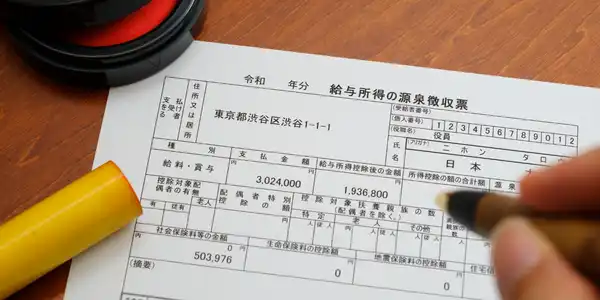 令和 年分 給与所得の源泉徴収票
支払を受ける者
住所又は居所
東京都渋谷区渋谷1-1-1
(受給者番号)
(個人番号) 1 2 3 4 5 6 7 8 9 0 1 2
(役職名) 役員
氏名
(フリガナ) ニホン タロ
日本
種別 支払金額 給与所得控除後の金額 所得控除の額の合計額 源泉
給料・賞与
円 3,024,000
円 1,936,800
控除対象配偶者の有無
配偶者特別控除の額
控除対象扶養親族の数
(配偶者を除く。)
有 従有 老人
特定 老人 その他
社会保険料等の金額 生命保険料の控除額 地震保険料の控除額 住宅
円 0
503,976
円 0
円 0
(摘要)